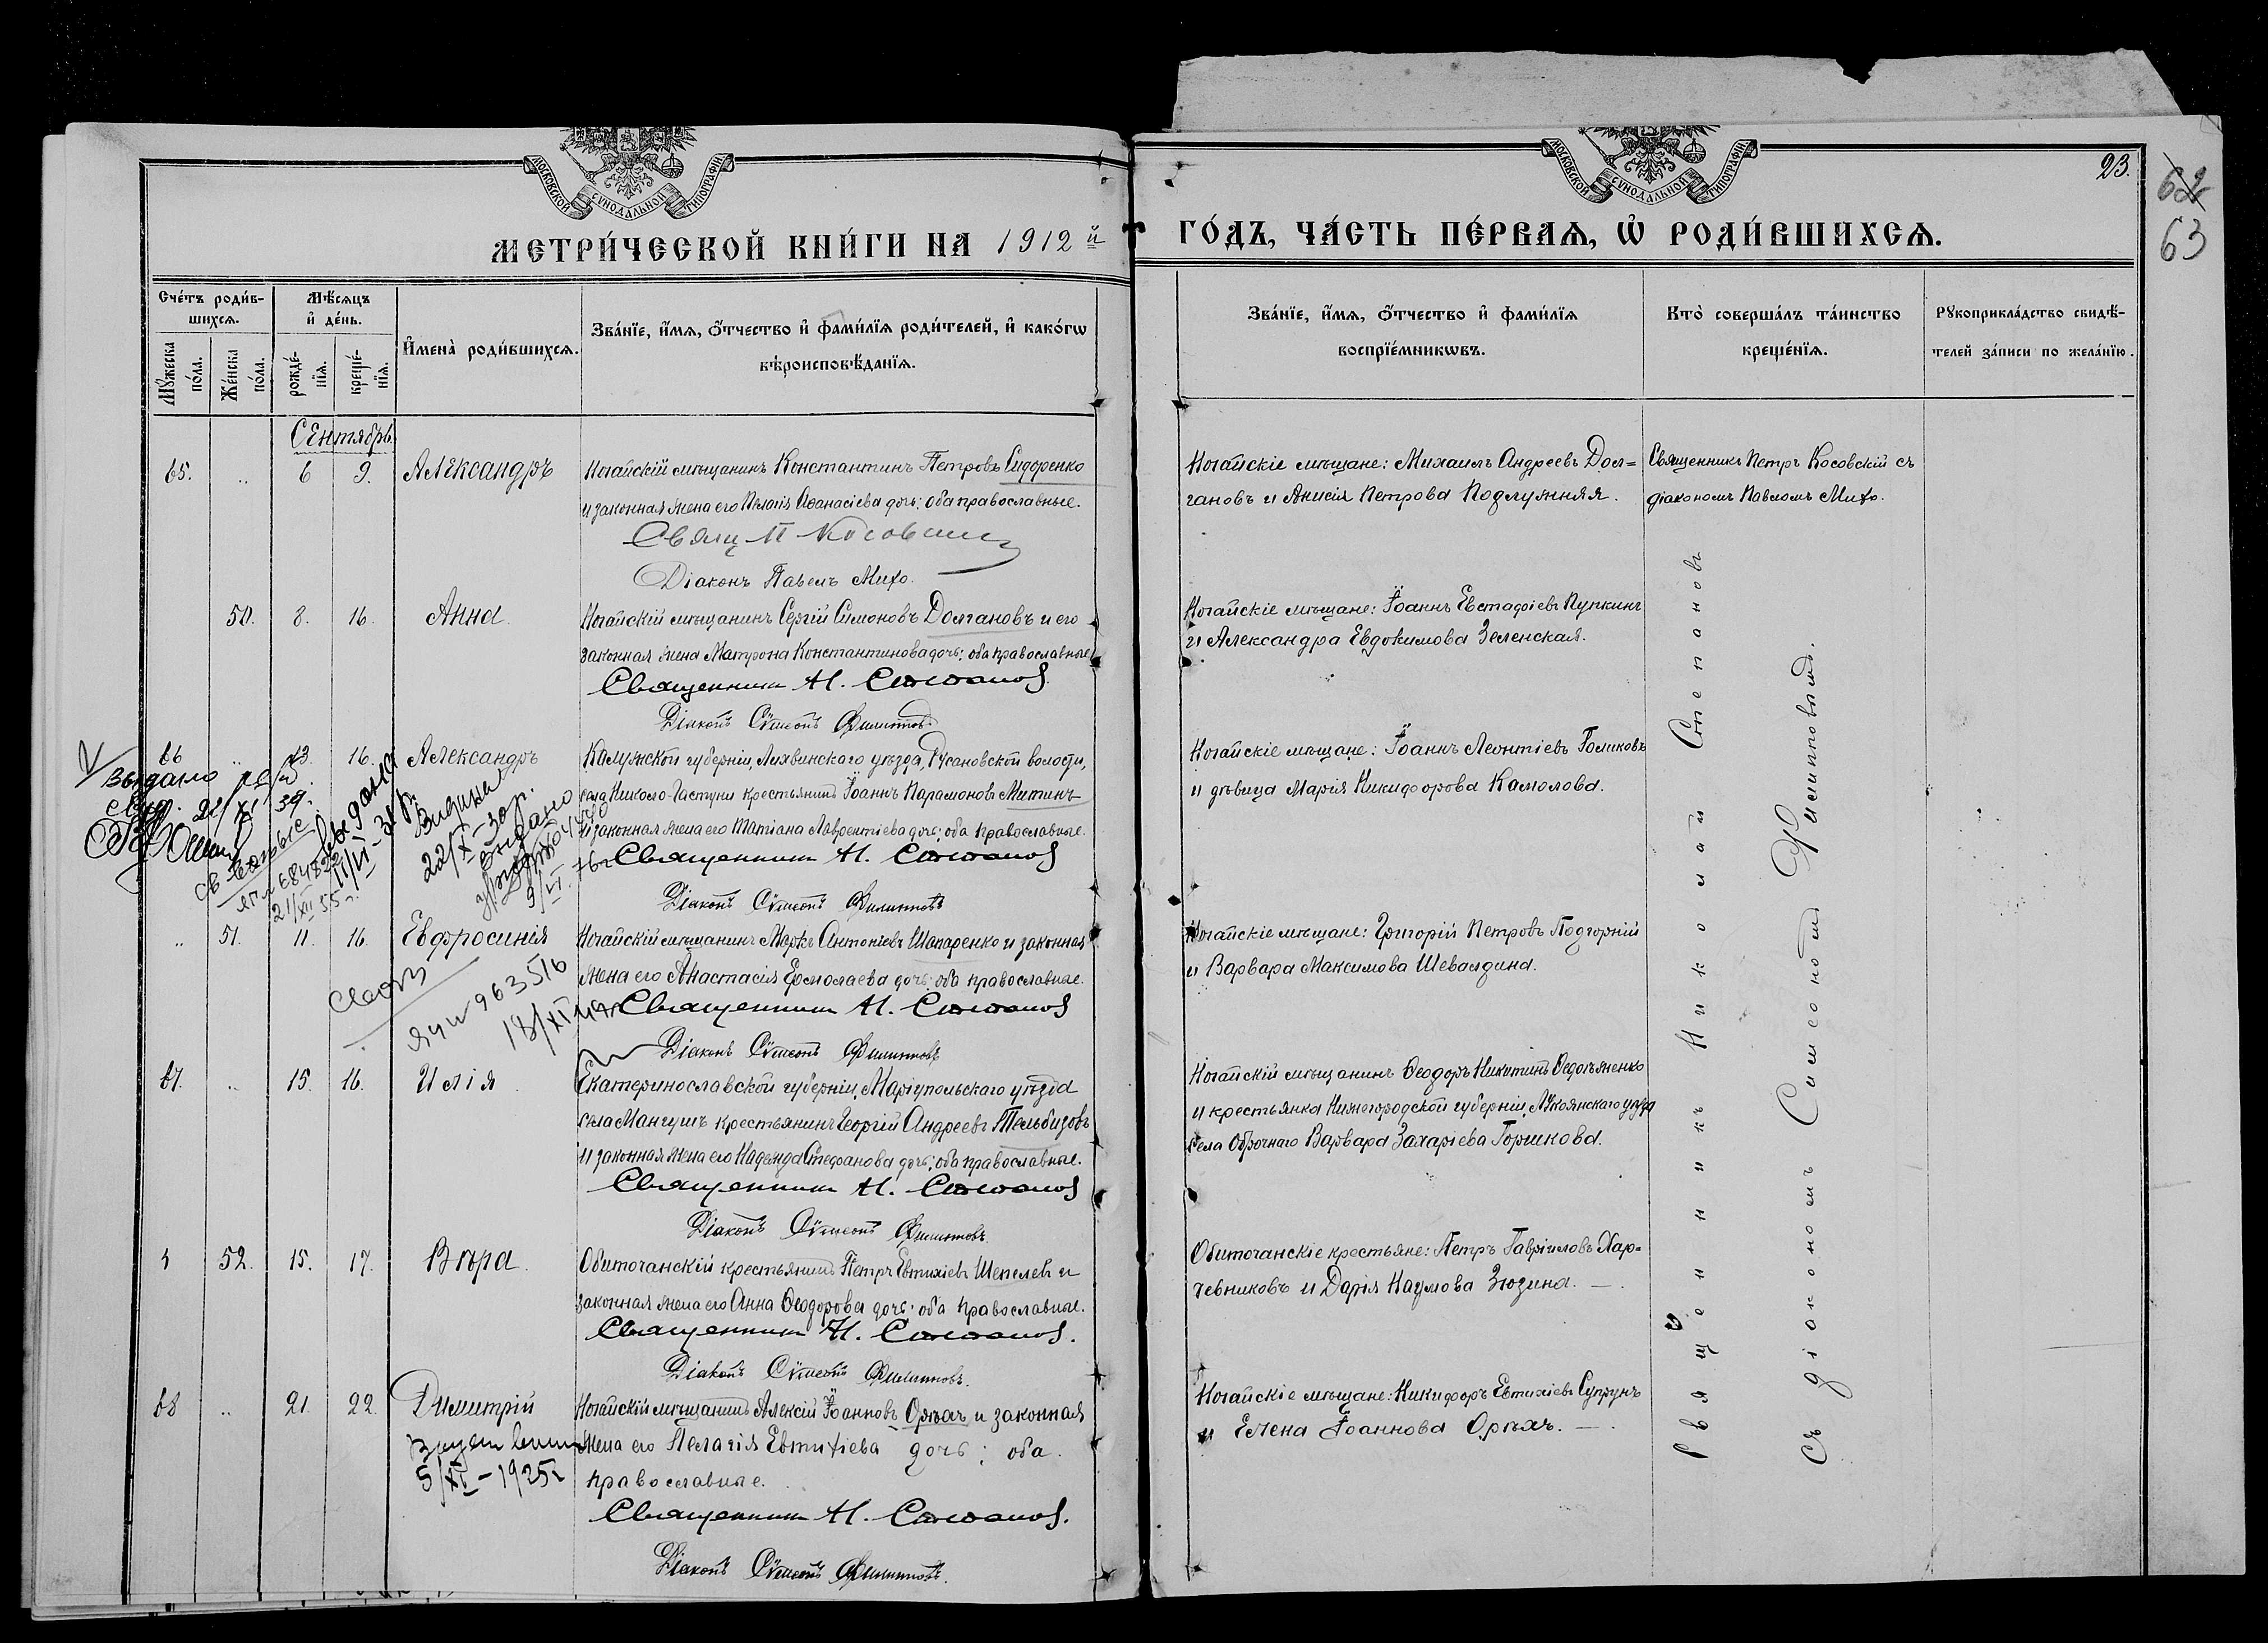 МОСКОВСКОЙ СУНОДАЛЬНОЙ ТИПОГРАФІИ
МОСКОВСКОЙ СУНОДАЛЬНОЙ ТИПОГРАФІИ
23.
62
63
МЕТРИ́ЧЕСКОЙ КНИ́ГИ НА 1912 й
ГО́ДЪ, ЧА́СТЬ ПЕ́РВАѦ, Ѡ РОДИ́ВШИХСѦ.
Сче́тъ роди́в-
шихсѧ.
Мѣ́сѧцъ
и де́нь.
Мꙋжеска по́ла.
Же́нска по́ла.
рожде́-нїѧ.
креще́-нїѧ.
Имена̀ роди́вшихсѧ.
Зва́нїе, и́мѧ, ѻ́тчество и фами́лїѧ роди́телей, и како́гѡ
вѣроисповѣ́данїѧ.
Зва́нїе, и́мѧ, ѻ́тчество и фами́лїѧ
воспрїе́мникѡвъ.
Кто̀ соверша́лъ та́инство
креще́нїѧ.
Рꙋкоприкла́дство свидѣ́-
телей за́писи по жела́нїю.
Сентябрь
65. „ 6 9. Александръ
Ногайскій мѣщанинъ Константинъ Петровъ Сидоренко
и законная жена его Пелагія Аѳанасіева дочь; оба православные.
Свящ П Косовскій
Діаконъ Павелъ Михо.
Ногайскіе мѣщане: Михаилъ Андреевъ Дол=
гановъ и Анисія Петрова Подлужняя.
Священникъ Петръ Косовскій съ
діакономъ Павломъ Михо.
50. 8. 16. Анна.
Ногайскій мѣщанинъ Сергій Симоновъ Долгановъ и его
законная жена Матрона Константинова дочь; оба православные
Священникъ Н. Степановъ
Діаконъ Сѵмеонъ Филипповъ
Ногайскіе мѣщане: Іоаннъ Евстафіевъ Пупкинъ
и Александра Евдокимова Зеленская.
66 „ 13. 16. Александръ
Калужской губерніи, Лихвинскаго уѣзда, Русановской волости,
села Николо-Гастуни крестьянинъ Іоаннъ Парамоновъ Митинъ
и законная жена его Татіана Лаврентіева дочь; оба православные.
Священникъ Н. Степановъ
Діаконъ Сѵмеонъ Филипповъ
Ногайскіе мѣщане: Іоаннъ Леонтіевъ Голиковъ
и дѣвица Марія Никифорова Камолова.
Выдано
21/XI 39.
21/XII 55 г.
11/VI-31 р.
22/X-30 р.
выдано
9/VI 76г
„ 51. 11. 16. Евфросинія
Ногайскій мѣщанинъ Маркъ Антоніевъ Шапаренко и законная
жена его Анастасія Ермолаева дочь; оба православные.
Священникъ Н. Степановъ
Діаконъ Сѵмеонъ Филипповъ
Ногайскіе мѣщане: Григорій Петровъ Подгорній
и Варвара Максимова Шевалдина.
963516
18/XI
67. „ 15. 16. Илія
Екатеринославской губерніи, Маріупольскаго уѣзда
села Мангушъ крестьянинъ Георгій Андреевъ Тельбизовъ
и законная жена его Надежда Стефанова дочь; оба православные.
Священникъ Н. Степановъ
Діаконъ Сѵмеонъ Филипповъ
Ногайскій мѣщанинъ Ѳеодоръ Никитинъ Ѳедосѣенко
и крестьянка Нижегородской губерніи, Лукоянскаго уѣзда
села Оброчнаго Варвара Захаріева Горшкова.
52. 15. 17. Вѣра.
Обиточанскій крестьянинъ Петръ Евтихіевъ Шепелевъ и
законная жена его Анна Ѳеодорова дочь; оба православные.
Священникъ Н. Степановъ.
Діаконъ Сѵмеонъ Филипповъ.
Обиточанскіе крестьяне: Петръ Гавріиловъ Хар=
чевниковъ и Дарія Наумова Зюзина. —.
68 „ 21. 22. Димитрій
Ногайскій мѣщанинъ Алексій Іоанновъ Орѣхъ и законная
жена его Пелагія Евтихіева дочь; оба
православные.
5/XI-1925г
Священникъ Н. Степановъ.
Діаконъ Сѵмеонъ Филипповъ.
Ногайскіе мѣщане: Никифоръ Евтихіевъ Супрунъ
и Елена Іоаннова Орѣхъ. —.
Священникъ Николай Степановъ
съ діакономъ Симеономъ Филипповымъ.